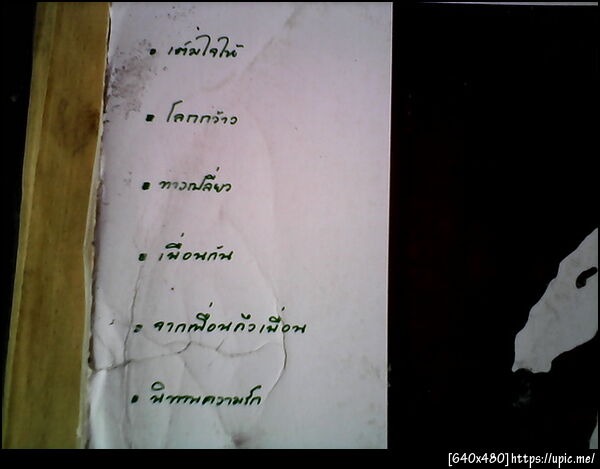 • เต็มใจให้
• โลกกว้าง
• ทางเปลี่ยว
• เพื่อนกัน
• จากเพื่อนถึงเพื่อน
• นิทานความรัก
[640x480]https://upic.me/